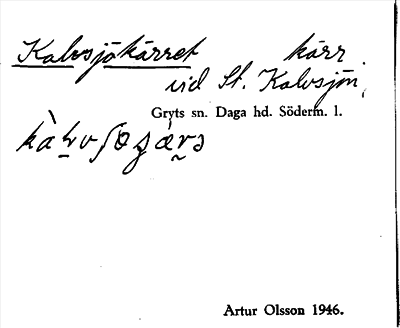 Kalvsjökärret kärr
vid St. Kalvsjön,
Gryts sn. Daga hd. Söderm. l.
Artur Olsson 1946.